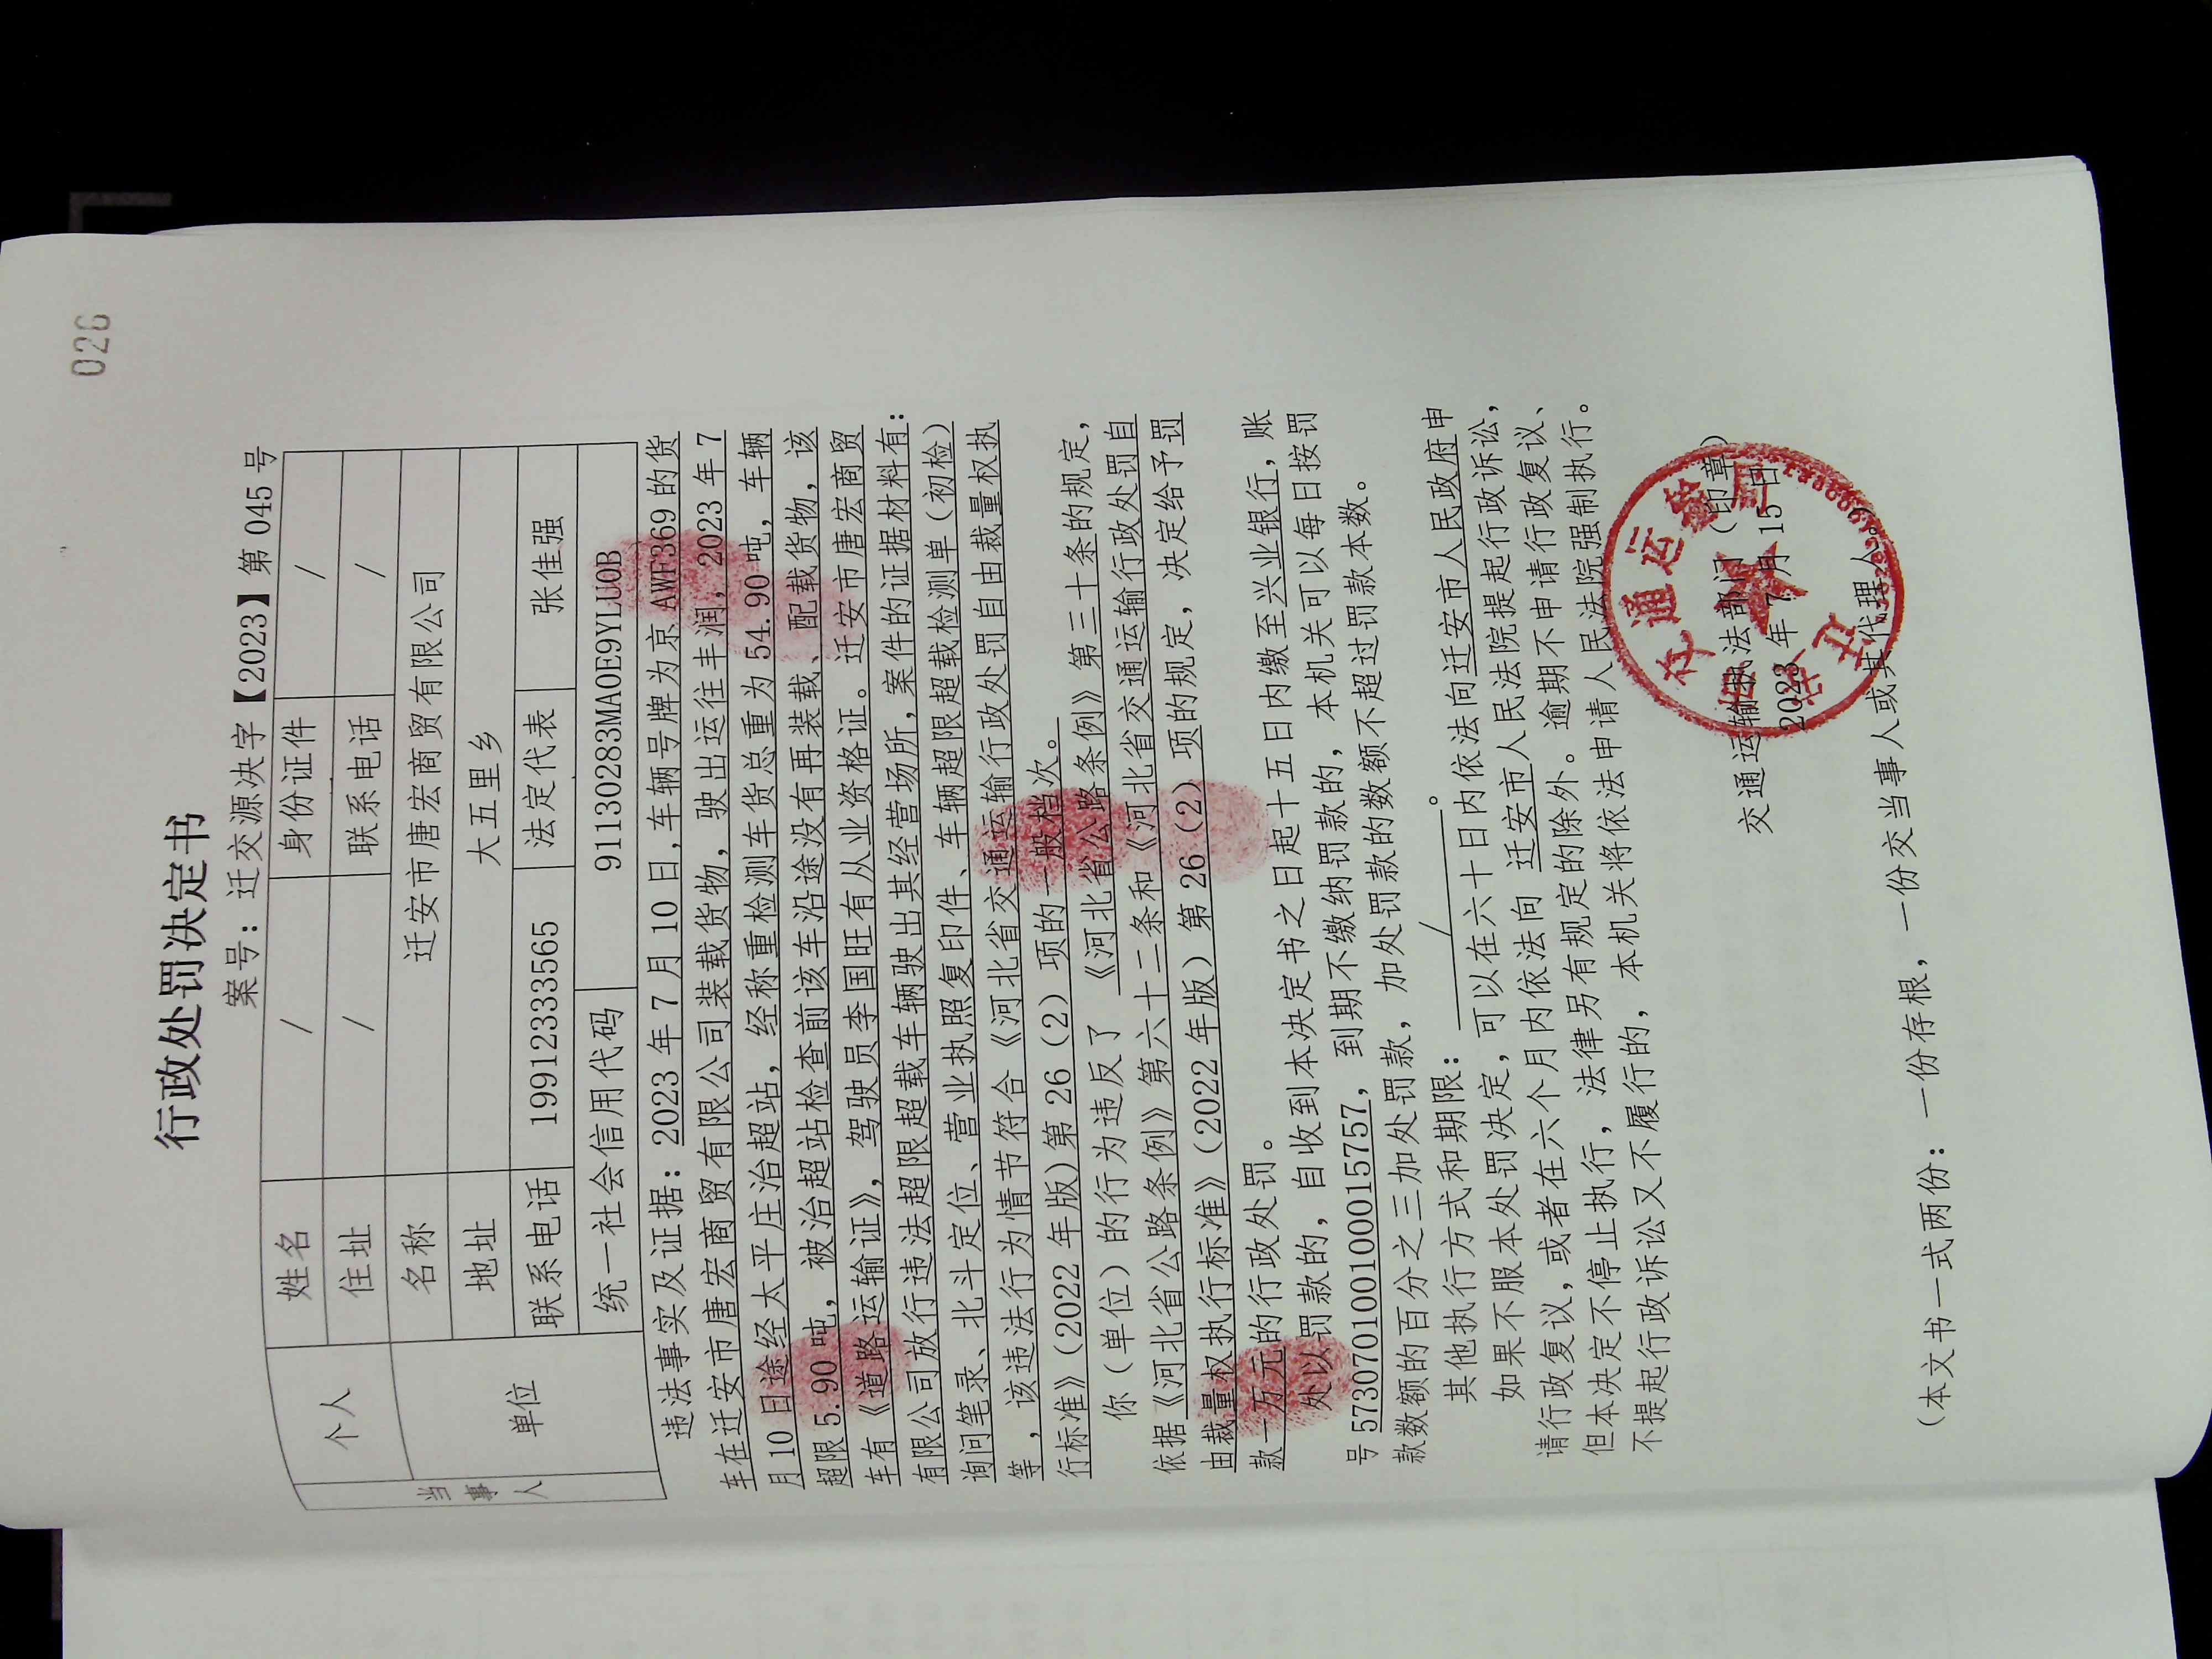 026
行政处罚决定书
案号：迁交源决字【2023】第 045 号
当事人 个人 姓名 / 身份证件 /
住址 / 联系电话 /
单位 名称 迁安市唐宏商贸有限公司
地址 大五里乡
联系电话 19912333565 法定代表 张佳强
统一社会信用代码 91130283MA0E9YLU0B
违法事实及证据：2023 年 7 月 10 日，车辆号牌为京 AWF369 的货
车在迁安市唐宏商贸有限公司装载货物，驶出运往丰润，2023 年 7
月 10 日途经太平庄治超站，经称重检测车货总重为 54.90 吨，车辆
超限 5.90 吨，被治超站检查前该车沿途没有再装载、配载货物，该
车有《道路运输证》，驾驶员李国旺有从业资格证。迁安市唐宏商贸
有限公司放行违法超限超载车辆驶出其经营场所，案件的证据材料有：
询问笔录、北斗定位、营业执照复印件、车辆超限超载检测单（初检）
等，该违法行为情节符合《河北省交通运输行政处罚自由裁量权执
行标准》（2022 年版）第 26（2）项的一般档次。
你（单位）的行为违反了 《河北省公路条例》第三十条的规定，
依据《河北省公路条例》第六十二条和《河北省交通运输行政处罚自
由裁量权执行标准》（2022 年版）第 26（2）项的规定，决定给予罚
款一万元的行政处罚。
处以罚款的，自收到本决定书之日起十五日内缴至兴业银行，账
号 573070100100015757，到期不缴纳罚款的，本机关可以每日按罚
款数额的百分之三加处罚款，加处罚款的数额不超过罚款本数。
其他执行方式和期限： / 。
如果不服本处罚决定，可以在六十日内依法向迁安市人民政府申
请行政复议，或者在六个月内依法向 迁安市人民法院提起行政诉讼，
但本决定不停止执行，法律另有规定的除外。逾期不申请行政复议、
不提起行政诉讼又不履行的，本机关将依法申请人民法院强制执行。
交通运输执法部门（印章）
2023 年 7 月 15 日
（本文书一式两份：一份存根，一份交当事人或其代理人。）